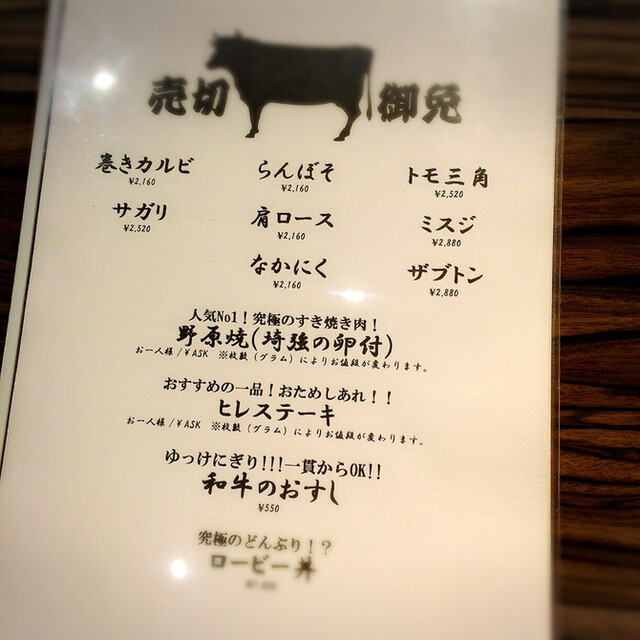 売切 御免
巻きカルビ らんぼそ トモ三角
¥2,160 ¥2,160 ¥2,520
サガリ 肩ロース ミスジ
¥2,520 ¥2,160 ¥2,880
なかにく ザブトン
¥2,160 ¥2,880
人気No1！究極のすき焼き肉！
野原焼(埼強の卵付)
お一人様/¥ASK ※枚数（グラム）によりお値段が変わります。
おすすめの一品！おためしあれ！！
ヒレステーキ
お一人様/¥ASK ※枚数（グラム）によりお値段が変わります。
ゆっけにぎり!!!一貫からOK!!
和牛のおすし
¥550
究極のどんぶり！？
ロービー丼